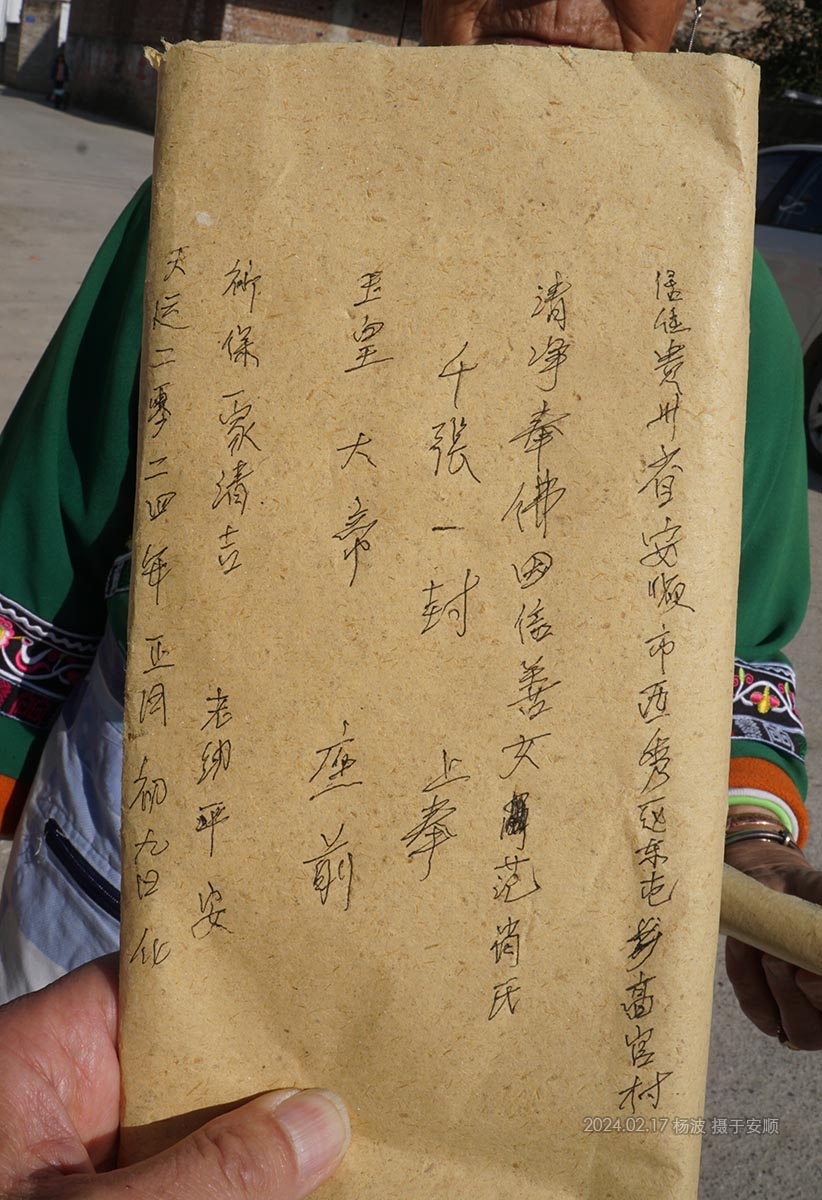 信住贵州省安顺市西秀区东屯乡高官村
清净奉佛因信善女范肖氏
千張一封 上奉
玉皇大帝 座前
祈保家清吉 老幼平安
天运二零二四年正月初九日化
2024.02.17 杨波 摄于安顺